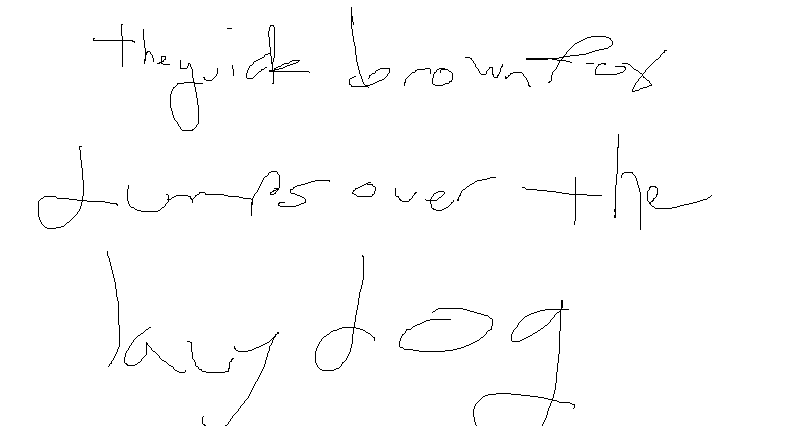 the quick brown fox
jumps over the
lazy dog